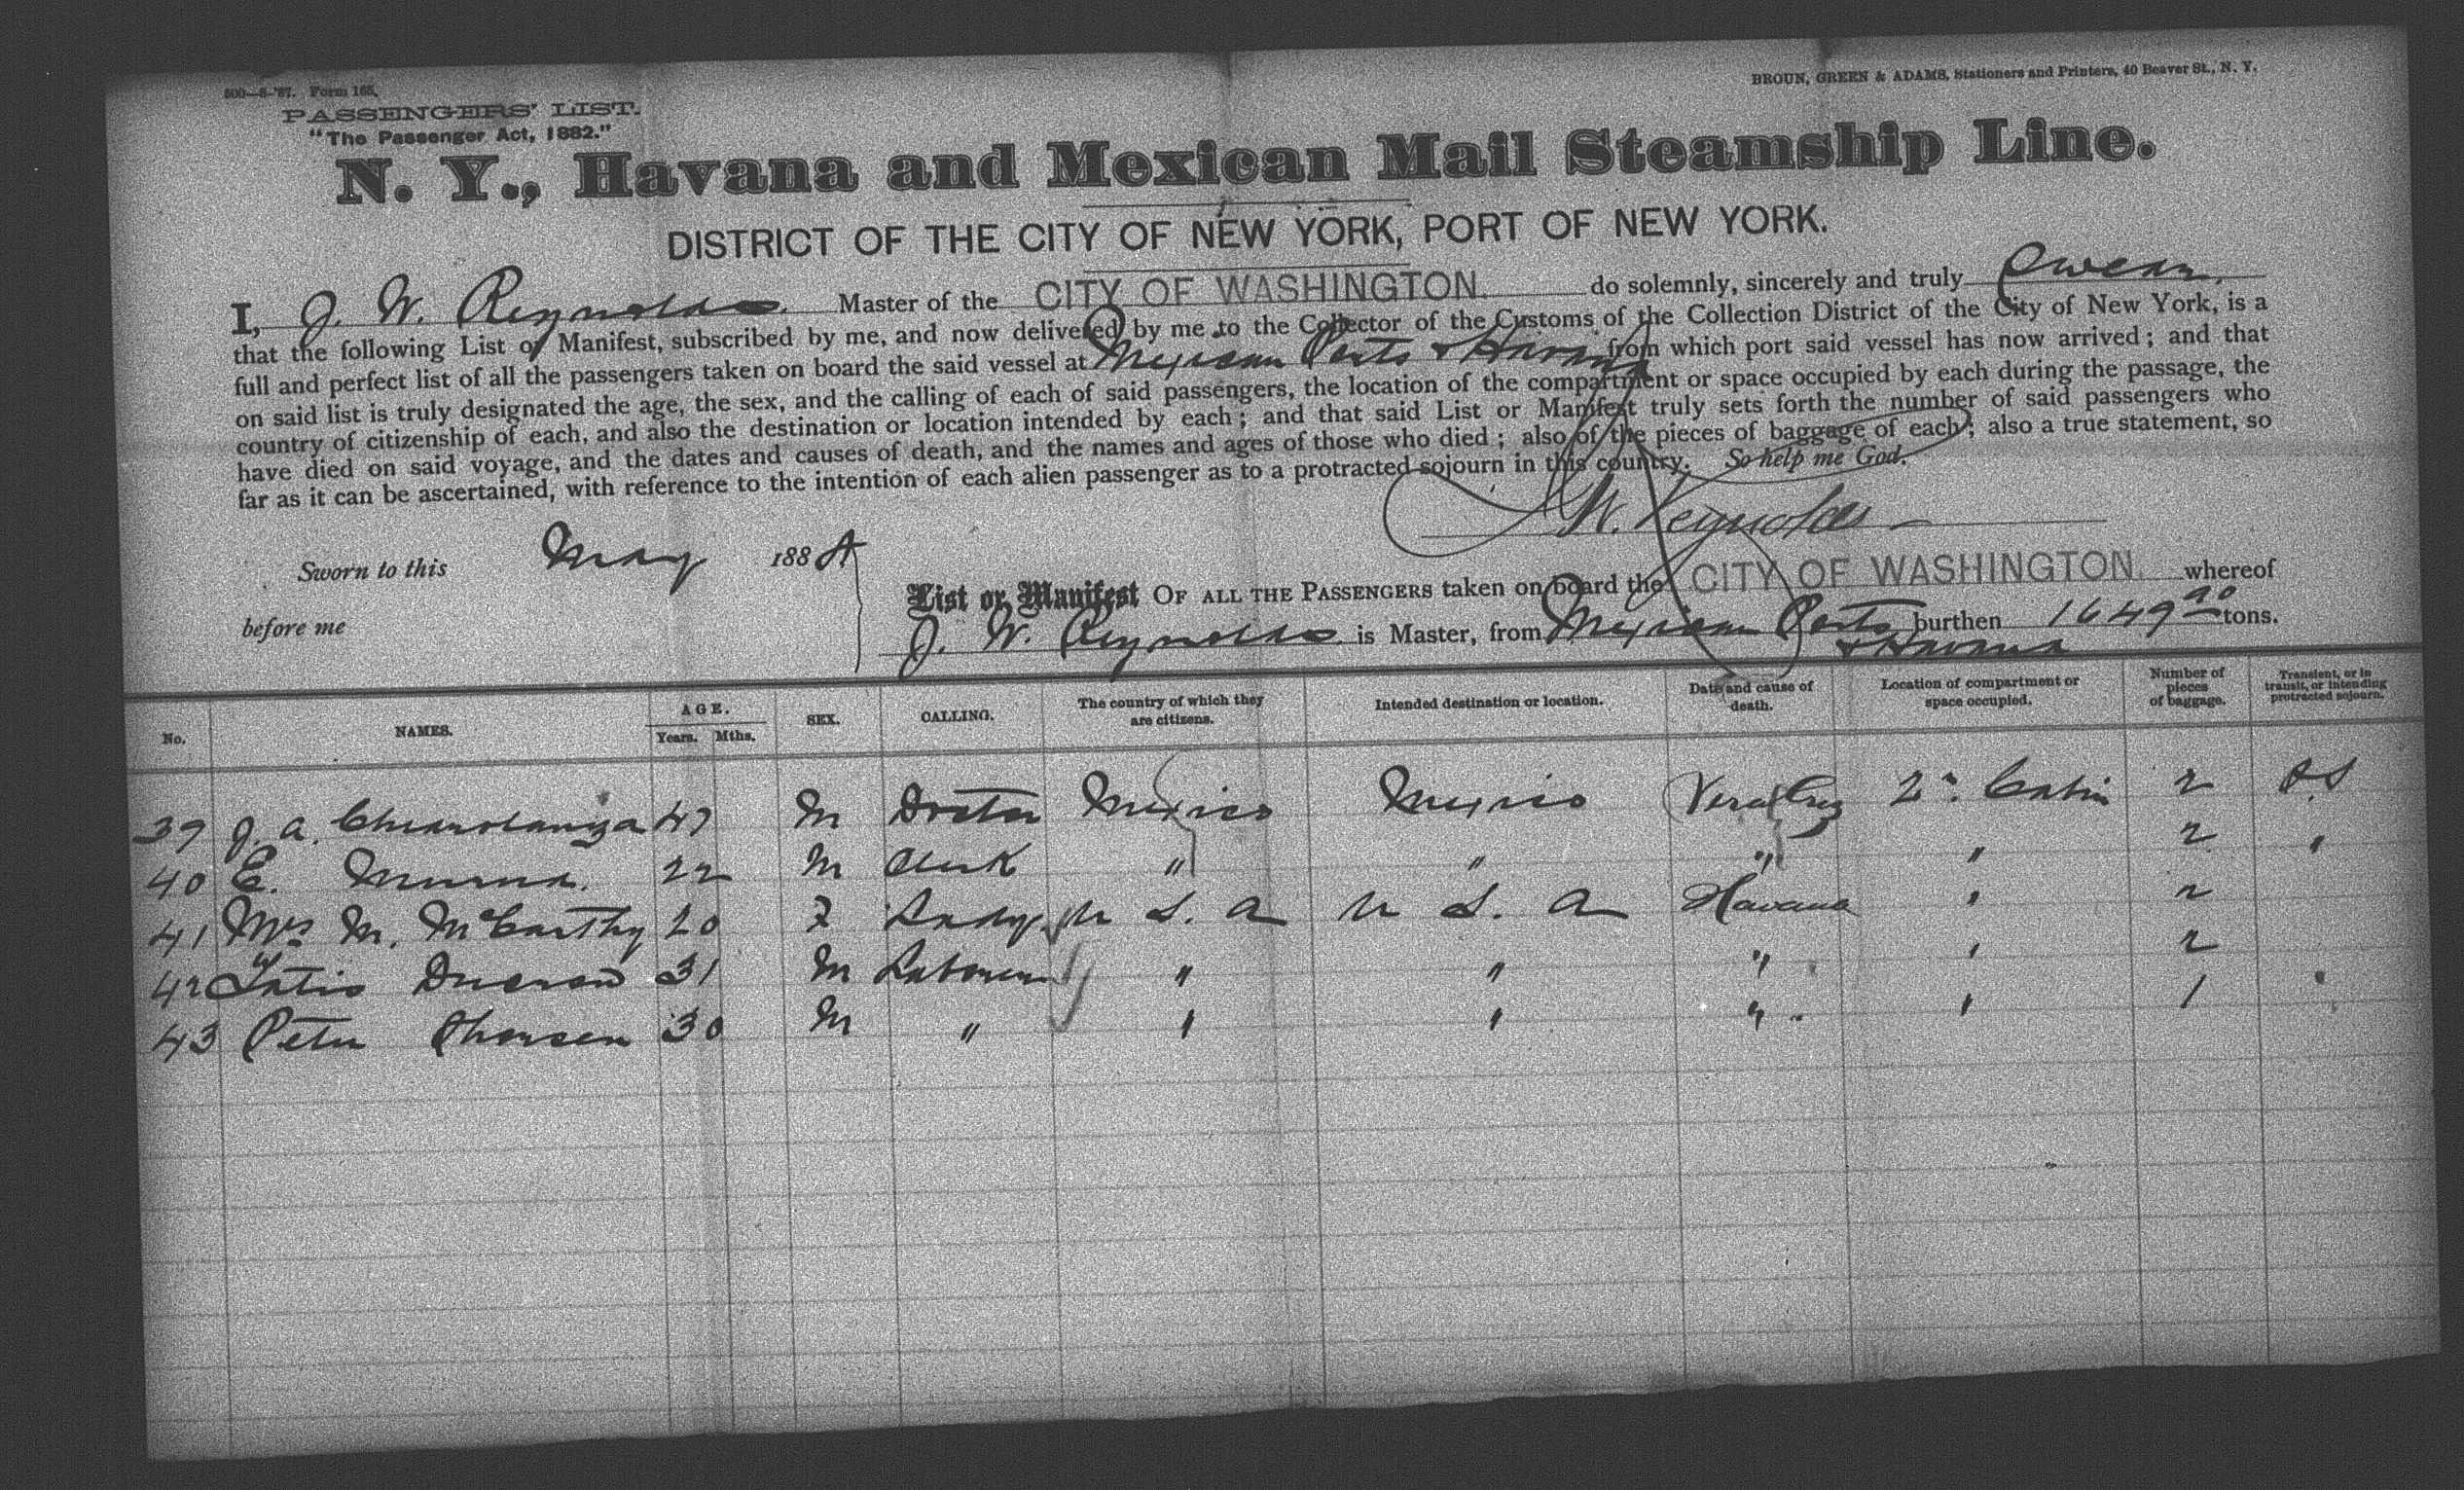 500—8-'87. Form 165.
BROUN, GREEN & ADAMS, Stationers and Printers, 40 Beaver St., N. Y.
PASSENGERS' LIST.
"The Passenger Act, 1882."
N. Y., Havana and Mexican Mail Steamship Line.
DISTRICT OF THE CITY OF NEW YORK, PORT OF NEW YORK.
I, J. W. Reynolds. Master of the CITY OF WASHINGTON. do solemnly, sincerely and truly Swear,
that the following List or Manifest, subscribed by me, and now delivered by me to the Collector of the Customs of the Collection District of the City of New York, is a
full and perfect list of all the passengers taken on board the said vessel at Mexican Ports & Havana from which port said vessel has now arrived; and that
on said list is truly designated the age, the sex, and the calling of each of said passengers, the location of the compartment or space occupied by each during the passage, the
country of citizenship of each, and also the destination or location intended by each; and that said List or Manifest truly sets forth the number of said passengers who
have died on said voyage, and the dates and causes of death, and the names and ages of those who died; also of the pieces of baggage of each; also a true statement, so
far as it can be ascertained, with reference to the intention of each alien passenger as to a protracted sojourn in this country. So help me God.
J W. Reynolds
Sworn to this May 188
before me
List or Manifest OF ALL THE PASSENGERS taken on board the CITY OF WASHINGTON. whereof
J. W. Reynolds is Master, from Mexican Ports & Havana burthen 1649 20 tons.
No. NAMES. AGE. Years. Mths. SEX. CALLING. The country of which they are citizens. Intended destination or location. Date and cause of death. Location of compartment or space occupied. Number of pieces of baggage. Transient, or in transit, or intending protracted sojourn.
39 J. A. 47 M Doctor Mexico Mexico Vera Cruz 2". Cabin 2
40 E. 22 M Clerk " " " " 2 "
41 Mrs M. McCarthy 20 F Lady U S. A U S. A Havana " 2
42 31 M Laborer " " " " 2
43 Peter 30 M " " " " " 1